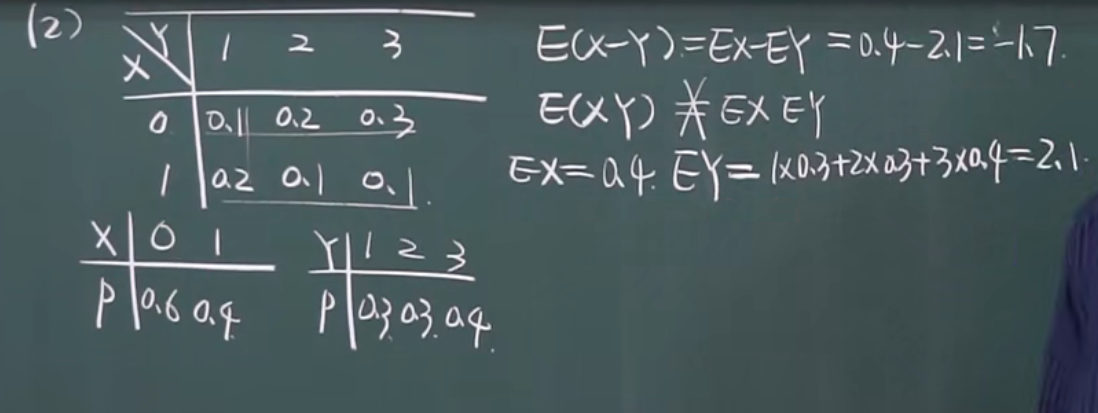 (2)
Y 1 2 3
X
0 0.1 0.2 0.3
1 0.2 0.1 0.1
X 0 1
P 0.6 0.4
Y 1 2 3
P 0.3 0.3 0.4
E(X-Y)=EX-EY=0.4-2.1=-1.7.
E(XY)≠EXEY
EX=0.4. EY=1×0.3+2×0.3+3×0.4=2.1.